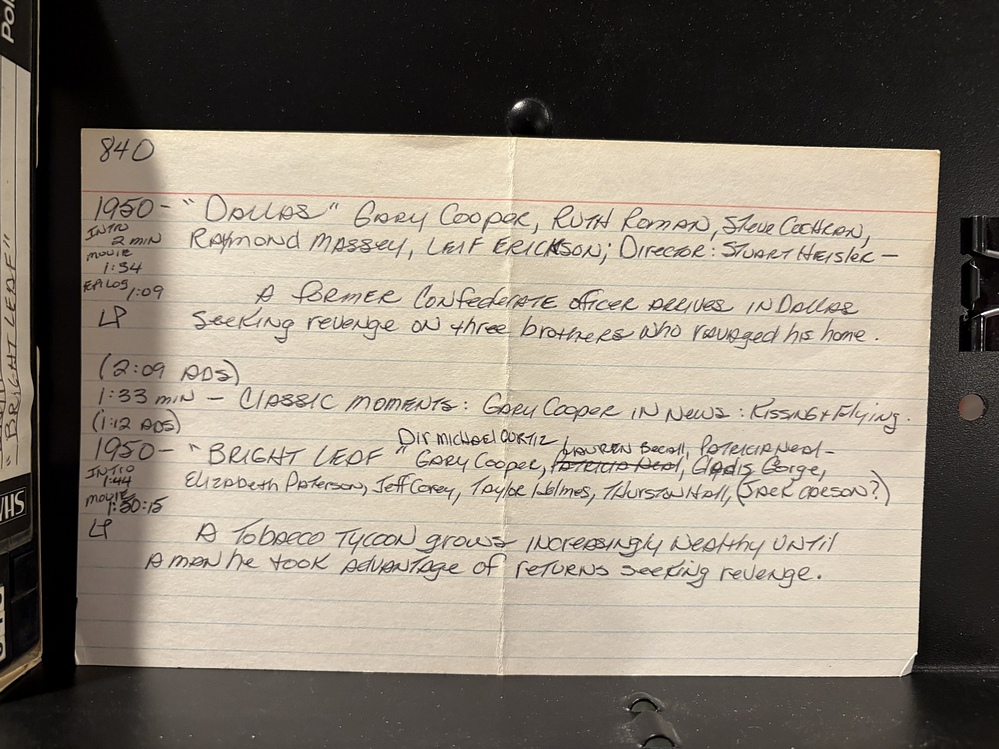 Pol
"BRIGHT LEAF"
VHS
840
1950 - "DALLAS" GARY COOPER, RUTH ROMAN, STEVE COCHRAN,
INTRO
2 MIN
RAYMOND MASSEY, LEIF ERICKSON; DIRECTOR: STUART HEISLER —
MOVIE
1:34
1:09
A FORMER CONFEDERATE OFFICER ARRIVES IN DALLAS
LP
SEEKING REVENGE ON THREE BROTHERS WHO RAVAGED HIS HOME.
(2:09 ADS)
1:33 MIN — CLASSIC MOMENTS: GARY COOPER IN NEWS: KISSING + FLYING.
(1:12 ADS)
DIR MICHAEL CURTIZ LAUREN BACALL, PATRICIA NEAL -
1950 - "BRIGHT LEAF" GARY COOPER, PATRICIA NEAL, GLADIS GEORGE,
INTRO
1:44
ELIZABETH PATERSON, JEFF COREY, TAYLOR HOLMES, THURSTON HALL, (JACK CARSON?)
MOVIE
1:50:15
LP
A TOBACCO TYCOON GROWS INCREASINGLY WEALTHY UNTIL
A MAN HE TOOK ADVANTAGE OF RETURNS SEEKING REVENGE.